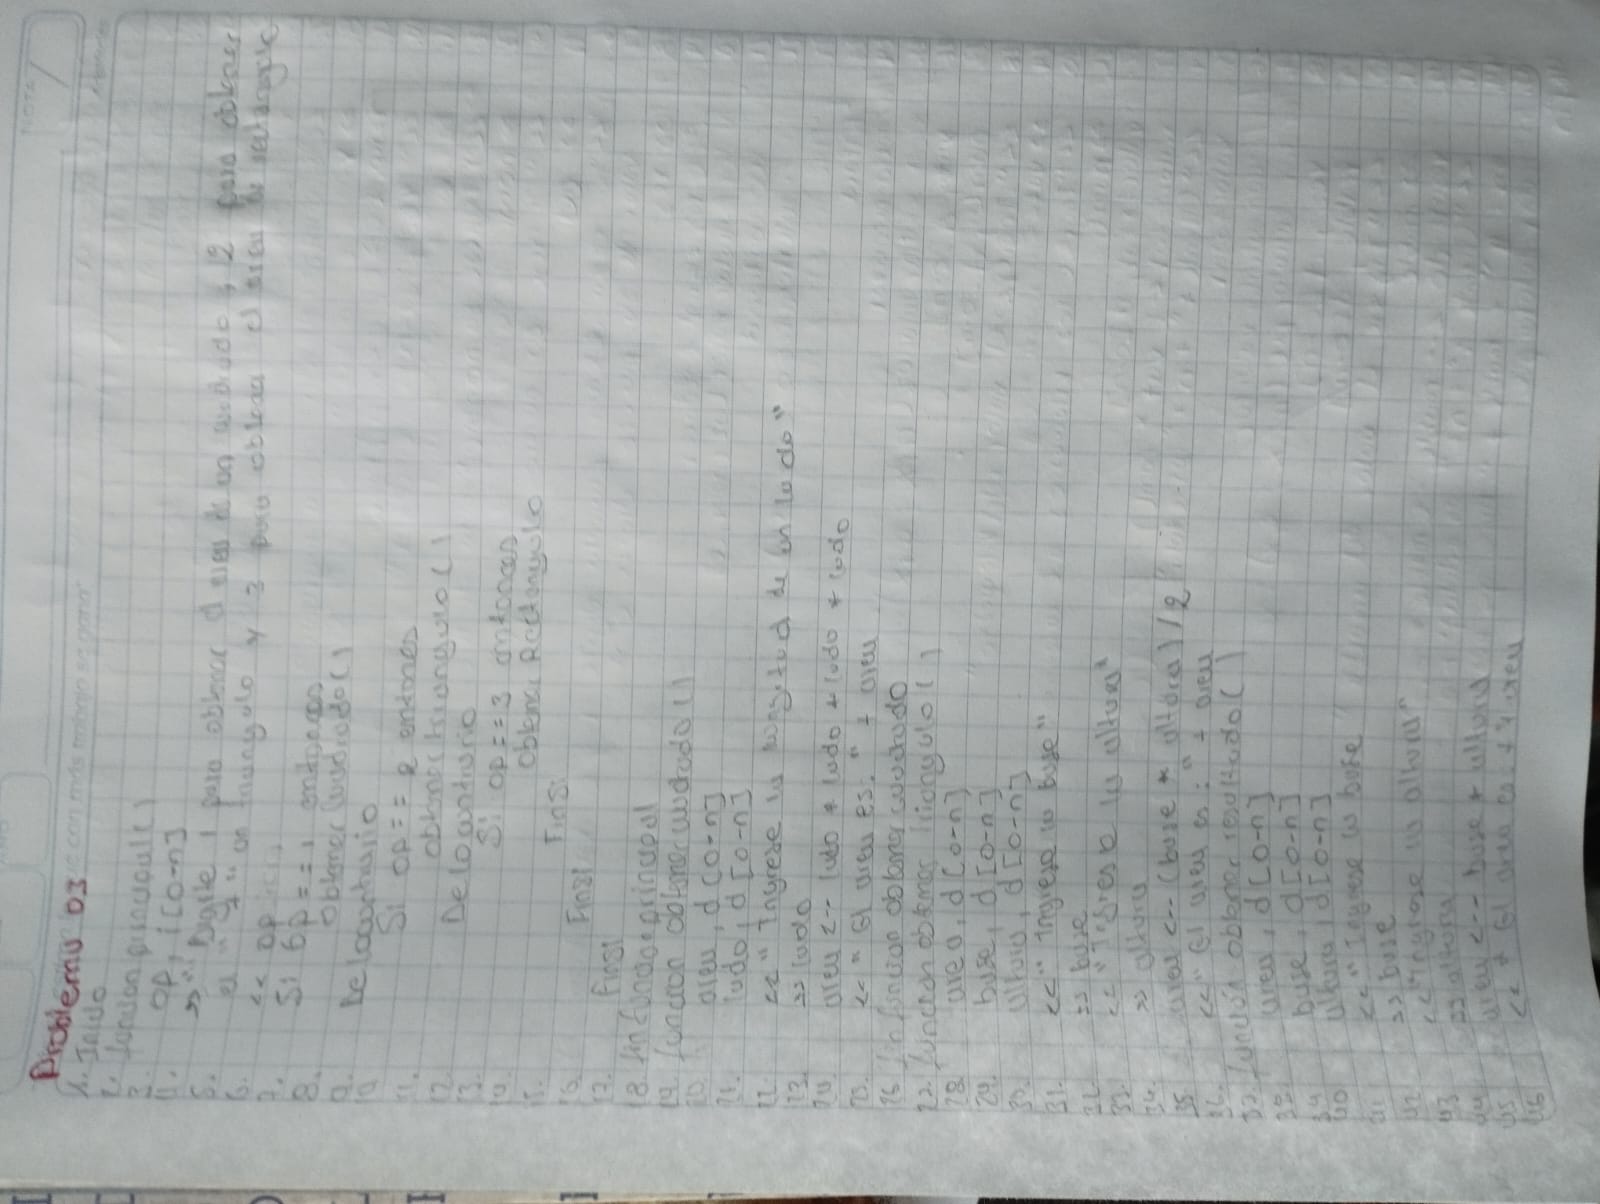 NOTA
que con more trabajo se gana"
Problema 03
1. Inicio
2. función principal()
3. op, i [0-n]
4. >> "Digite 1 para obtener el area de un cuadrado, 2 para obtener
5. el " " un triangulo y 3 para obtener el area de rectangulo
6. << op
7. Si op == 1 entonces
8. obtener cuadrado()
9. De lo contrario
10
11. Si op == 2 entonces
12. obtener triangulo()
13. De lo contrario
14. Si op == 3 entonces
15. obtener Rectangulo
16. FinSi
17. FinSi
FinSi
18. fin función principal
19. función obtener cuadrado()
20. area, d [0-n]
21. lado, d [0-n]
22. << "Ingrese la longitud de un lado"
23. >> lado
24. area <-- lado * lado + lado + lado
25. << "El area es: " + area
26 fin función obtener cuadrado
27. función obtener triangulo()
28 area, d [0-n]
29. base, d [0-n]
30. altura, d [0-n]
31. << "Ingrese la base"
32. >> base
33. << "Ingrese la altura"
34. >> altura
35. area <-- (base * altura) / 2
36. << "El area es: " + area
37. función obtener resultado()
38. area, d [0-n]
39 base, d [0-n]
40 altura, d [0-n]
41 << "Ingrese la base"
42 >> base
43 << "Ingrese la altura"
44 >> altura
45 area <-- base * altura
46 << El area es: + area